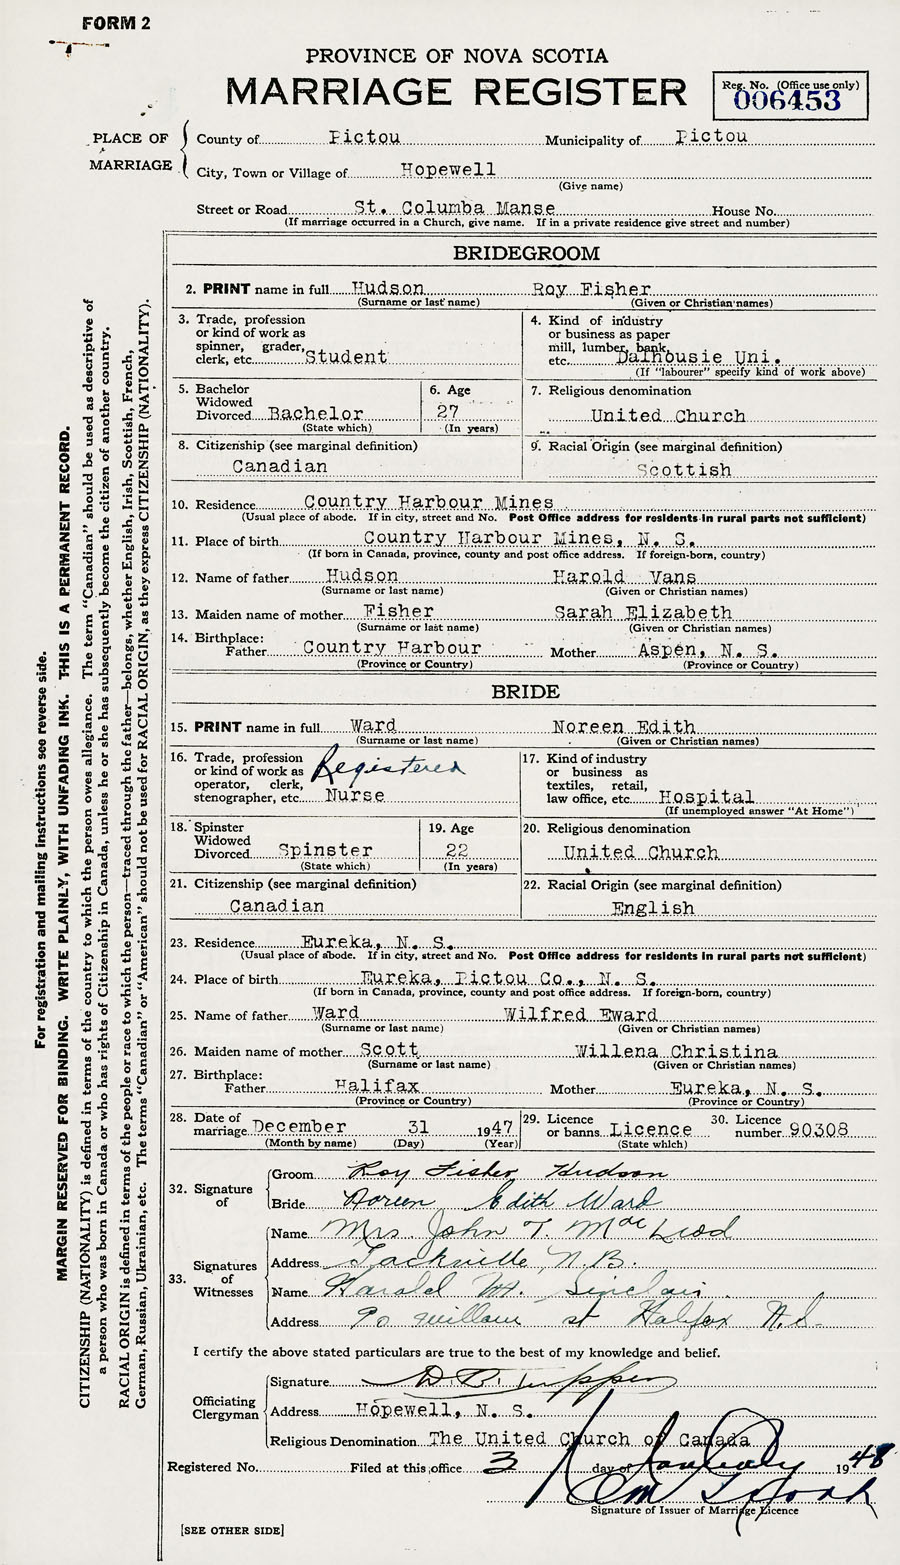 FORM 2
PROVINCE OF NOVA SCOTIA
MARRIAGE REGISTER
Reg. No. (Office use only)
006453
PLACE OF MARRIAGE
County of Pictou Municipality of Pictou
City, Town or Village of Hopewell
(Give name)
Street or Road St. Columba Manse House No.
(If marriage occurred in a Church, give name. If in a private residence give street and number)
BRIDEGROOM
2. PRINT name in full Hudson Roy Fisher
(Surname or last name) (Given or Christian names)
3. Trade, profession
or kind of work as
spinner, grader,
clerk, etc. Student
4. Kind of industry
or business as paper
mill, lumber, bank,
etc. Dalhousie Uni.
(If "labourer" specify kind of work above)
5. Bachelor
Widowed
Divorced Bachelor
(State which)
6. Age
27
(In years)
7. Religious denomination
United Church
8. Citizenship (see marginal definition)
Canadian
9. Racial Origin (see marginal definition)
Scottish
10. Residence Country Harbour Mines
(Usual place of abode. If in city, street and No. Post Office address for residents in rural parts not sufficient)
11. Place of birth Country Harbour Mines, N. S.
(If born in Canada, province, county and post office address. If foreign-born, country)
12. Name of father Hudson Harold Vans
(Surname or last name) (Given or Christian names)
13. Maiden name of mother Fisher Sarah Elizabeth
(Surname or last name) (Given or Christian names)
14. Birthplace:
Father Country Harbour Mother Aspen, N. S.
(Province or Country) (Province or Country)
BRIDE
15. PRINT name in full Ward Noreen Edith
(Surname or last name) (Given or Christian names)
16. Trade, profession
or kind of work as
operator, clerk,
stenographer, etc. Registered Nurse
17. Kind of industry
or business as
textiles, retail,
law office, etc. Hospital
(If unemployed answer "At Home")
18. Spinster
Widowed
Divorced Spinster
(State which)
19. Age
22
(In years)
20. Religious denomination
United Church
21. Citizenship (see marginal definition)
Canadian
22. Racial Origin (see marginal definition)
English
23. Residence Eureka, N. S.
(Usual place of abode. If in city, street and No. Post Office address for residents in rural parts not sufficient)
24. Place of birth Eureka, Pictou Co., N. S.
(If born in Canada, province, county and post office address. If foreign-born, country)
25. Name of father Ward Wilfred Eward
(Surname or last name) (Given or Christian names)
26. Maiden name of mother Scott Willena Christina
(Surname or last name) (Given or Christian names)
27. Birthplace:
Father Halifax Mother Eureka, N. S.
(Province or Country) (Province or Country)
28. Date of
marriage December 31 1947
(Month by name) (Day) (Year)
29. Licence
or banns Licence
(State which)
30. Licence
number 90308
32. Signature of
Groom Roy Fisher Hudson
Bride Noreen Edith Ward
33. Signatures of Witnesses
Name Mrs. John T. MacLeod
Address Sackville, N.B.
Name Harold W. Sinclair
Address 90 st Halifax N.S.
I certify the above stated particulars are true to the best of my knowledge and belief.
Officiating Clergyman
Signature D. B. Tupper
Address Hopewell, N. S.
Religious Denomination The United Church of Canada
Registered No. Filed at this office 3 day of January 1948
Signature of Issuer of Marriage Licence
[SEE OTHER SIDE]
For registration and mailing instructions see reverse side.
MARGIN RESERVED FOR BINDING. WRITE PLAINLY, WITH UNFADING INK. THIS IS A PERMANENT RECORD.
CITIZENSHIP (NATIONALITY) is defined in terms of the country to which the person owes allegiance. The term "Canadian" should be used as descriptive of
a person who was born in Canada or who has rights of Citizenship in Canada, unless he or she has subsequently become the citizen of another country.
RACIAL ORIGIN is defined in terms of the people or race to which the person—traced through the father—belongs, whether English, Irish, Scottish, French,
German, Russian, Ukrainian, etc. The terms "Canadian" or "American" should not be used for RACIAL ORIGIN, as they express CITIZENSHIP (NATIONALITY).